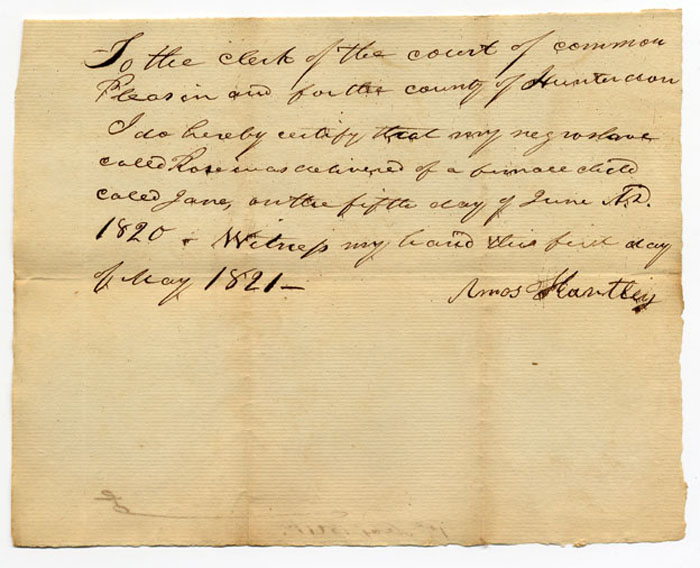 To the clerk of the court of common
Pleas in and for the county of Hunterdon
I do hereby certify that my negro slave
called Rose was delivered of a female child
called Jane, on the fifth day of June A.D.
1820 - Witness my hand this first day
of May 1821 -
Amos Hartley